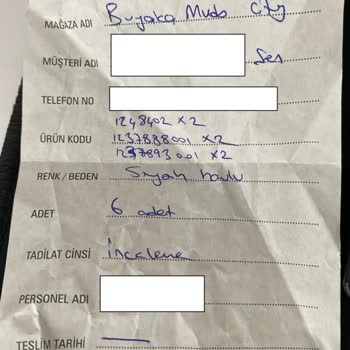 MAĞAZA ADI Buyaka Mudo City
MÜŞTERİ ADI
TELEFON NO
1248402 x2
ÜRÜN KODU 1237888001 x2
1237893001 x2
RENK / BEDEN Siyah havlu
ADET 6 adet
TADİLAT CİNSİ İnceleme
PERSONEL ADI
TESLİM TARİHİ